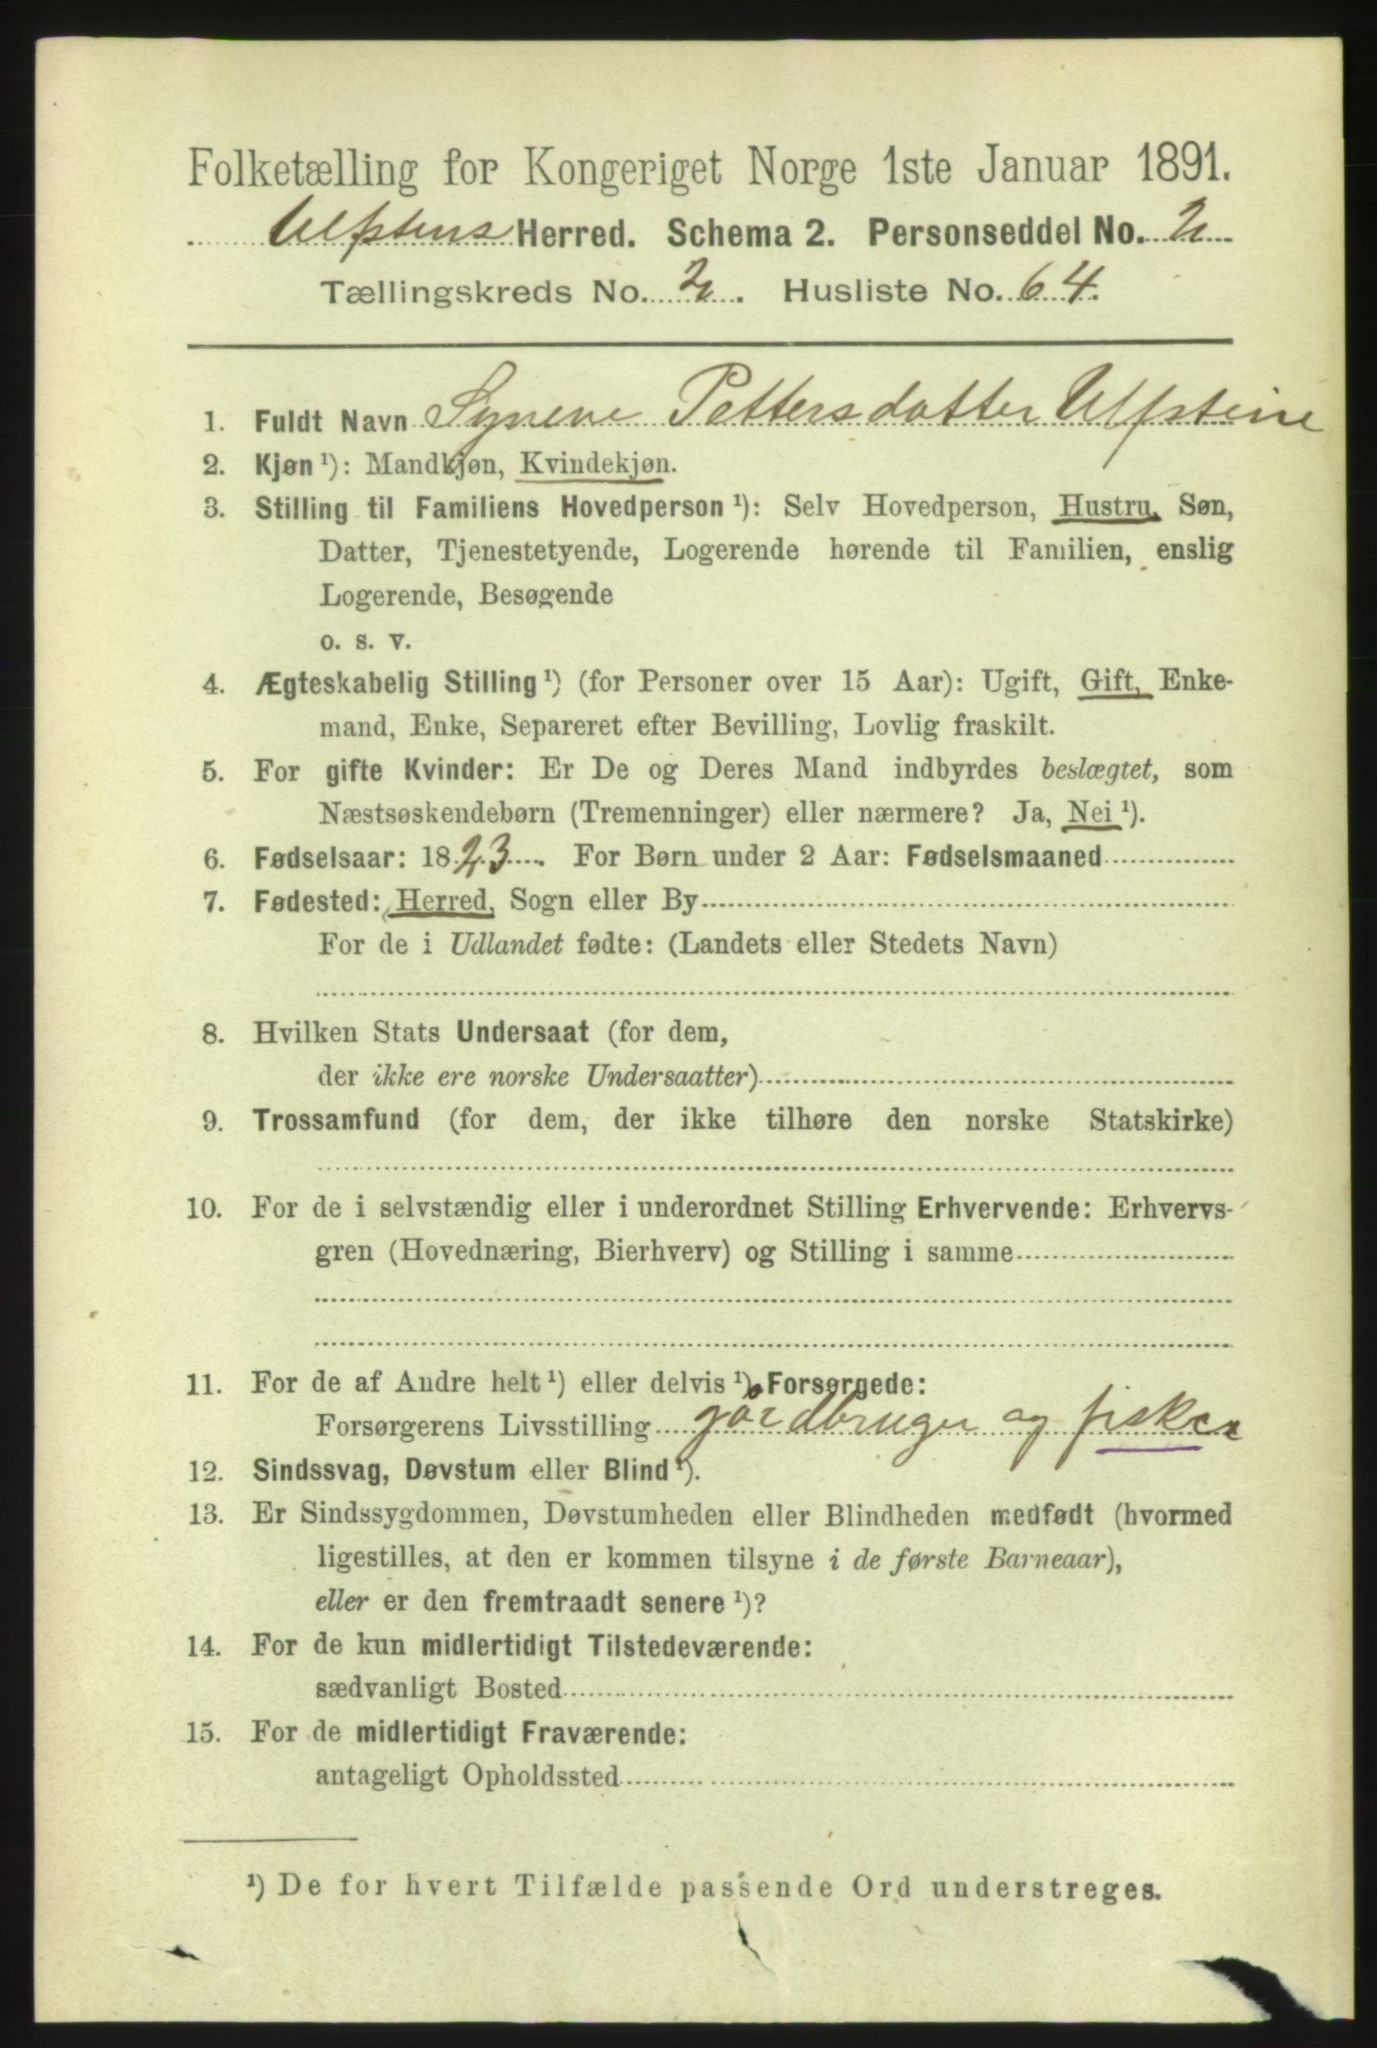 Folketælling for Kongeriget Norge 1ste Januar 1891.
Ulfstens Herred. Schema 2. Personseddel No. 2
Tællingskreds No. 2. Husliste No. 64.
1. Fuldt Navn Synneve Pettersdatter Ulfstein
2. Kjøn ¹): Mandkjøn, Kvindekjøn.
3. Stilling til Familiens Hovedperson ¹): Selv Hovedperson, Hustru, Søn,
Datter, Tjenestetyende, Logerende hørende til Familien, enslig
Logerende, Besøgende
o. s. v.
4. Ægteskabelig Stilling ¹) (for Personer over 15 Aar): Ugift, Gift, Enke-
mand, Enke, Separeret efter Bevilling, Lovlig fraskilt.
5. For gifte Kvinder: Er De og Deres Mand indbyrdes beslægtet, som
Næstsøskendebørn (Tremenninger) eller nærmere? Ja, Nei ¹).
6. Fødselsaar: 1823. For Børn under 2 Aar: Fødselsmaaned
7. Fødested: Herred, Sogn eller By
For de i Udlandet fødte: (Landets eller Stedets Navn)
8. Hvilken Stats Undersaat (for dem,
der ikke ere norske Undersaatter)
9. Trossamfund (for dem, der ikke tilhøre den norske Statskirke)
10. For de i selvstændig eller i underordnet Stilling Erhvervende: Erhvervs-
gren (Hovednæring, Bierhverv) og Stilling i samme
11. For de af Andre helt ¹) eller delvis ¹) Forsørgede:
Forsørgerens Livsstilling gårdbruger og fisker
12. Sindssvag, Døvstum eller Blind ¹).
13. Er Sindssygdommen, Døvstumheden eller Blindheden medfødt (hvormed
ligestilles, at den er kommen tilsyne i de første Barneaar),
eller er den fremtraadt senere ¹)?
14. For de kun midlertidigt Tilstedeværende:
sædvanligt Bosted
15. For de midlertidigt Fraværende:
antageligt Opholdssted
¹) De for hvert Tilfælde passende Ord understreges.